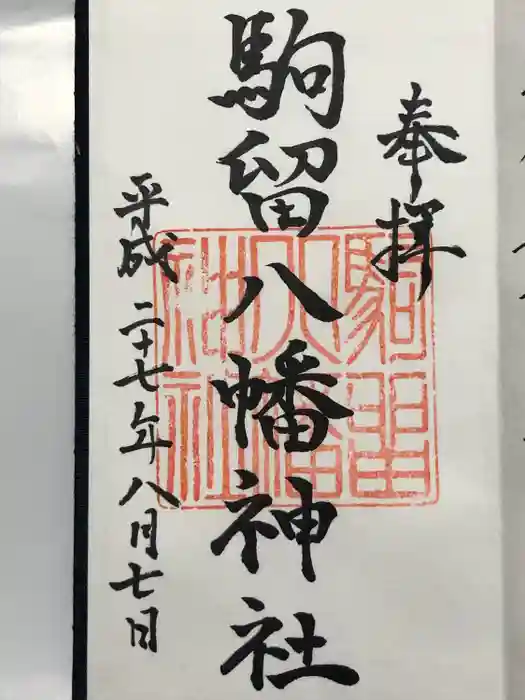 奉拝
駒留八幡神社
平成二十七年八月七日
駒留
八幡
神社